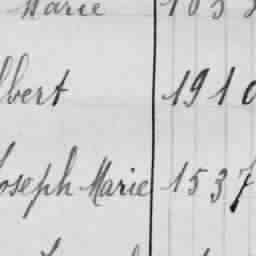 Marie 103
lbert 1910
Joseph Marie 1537